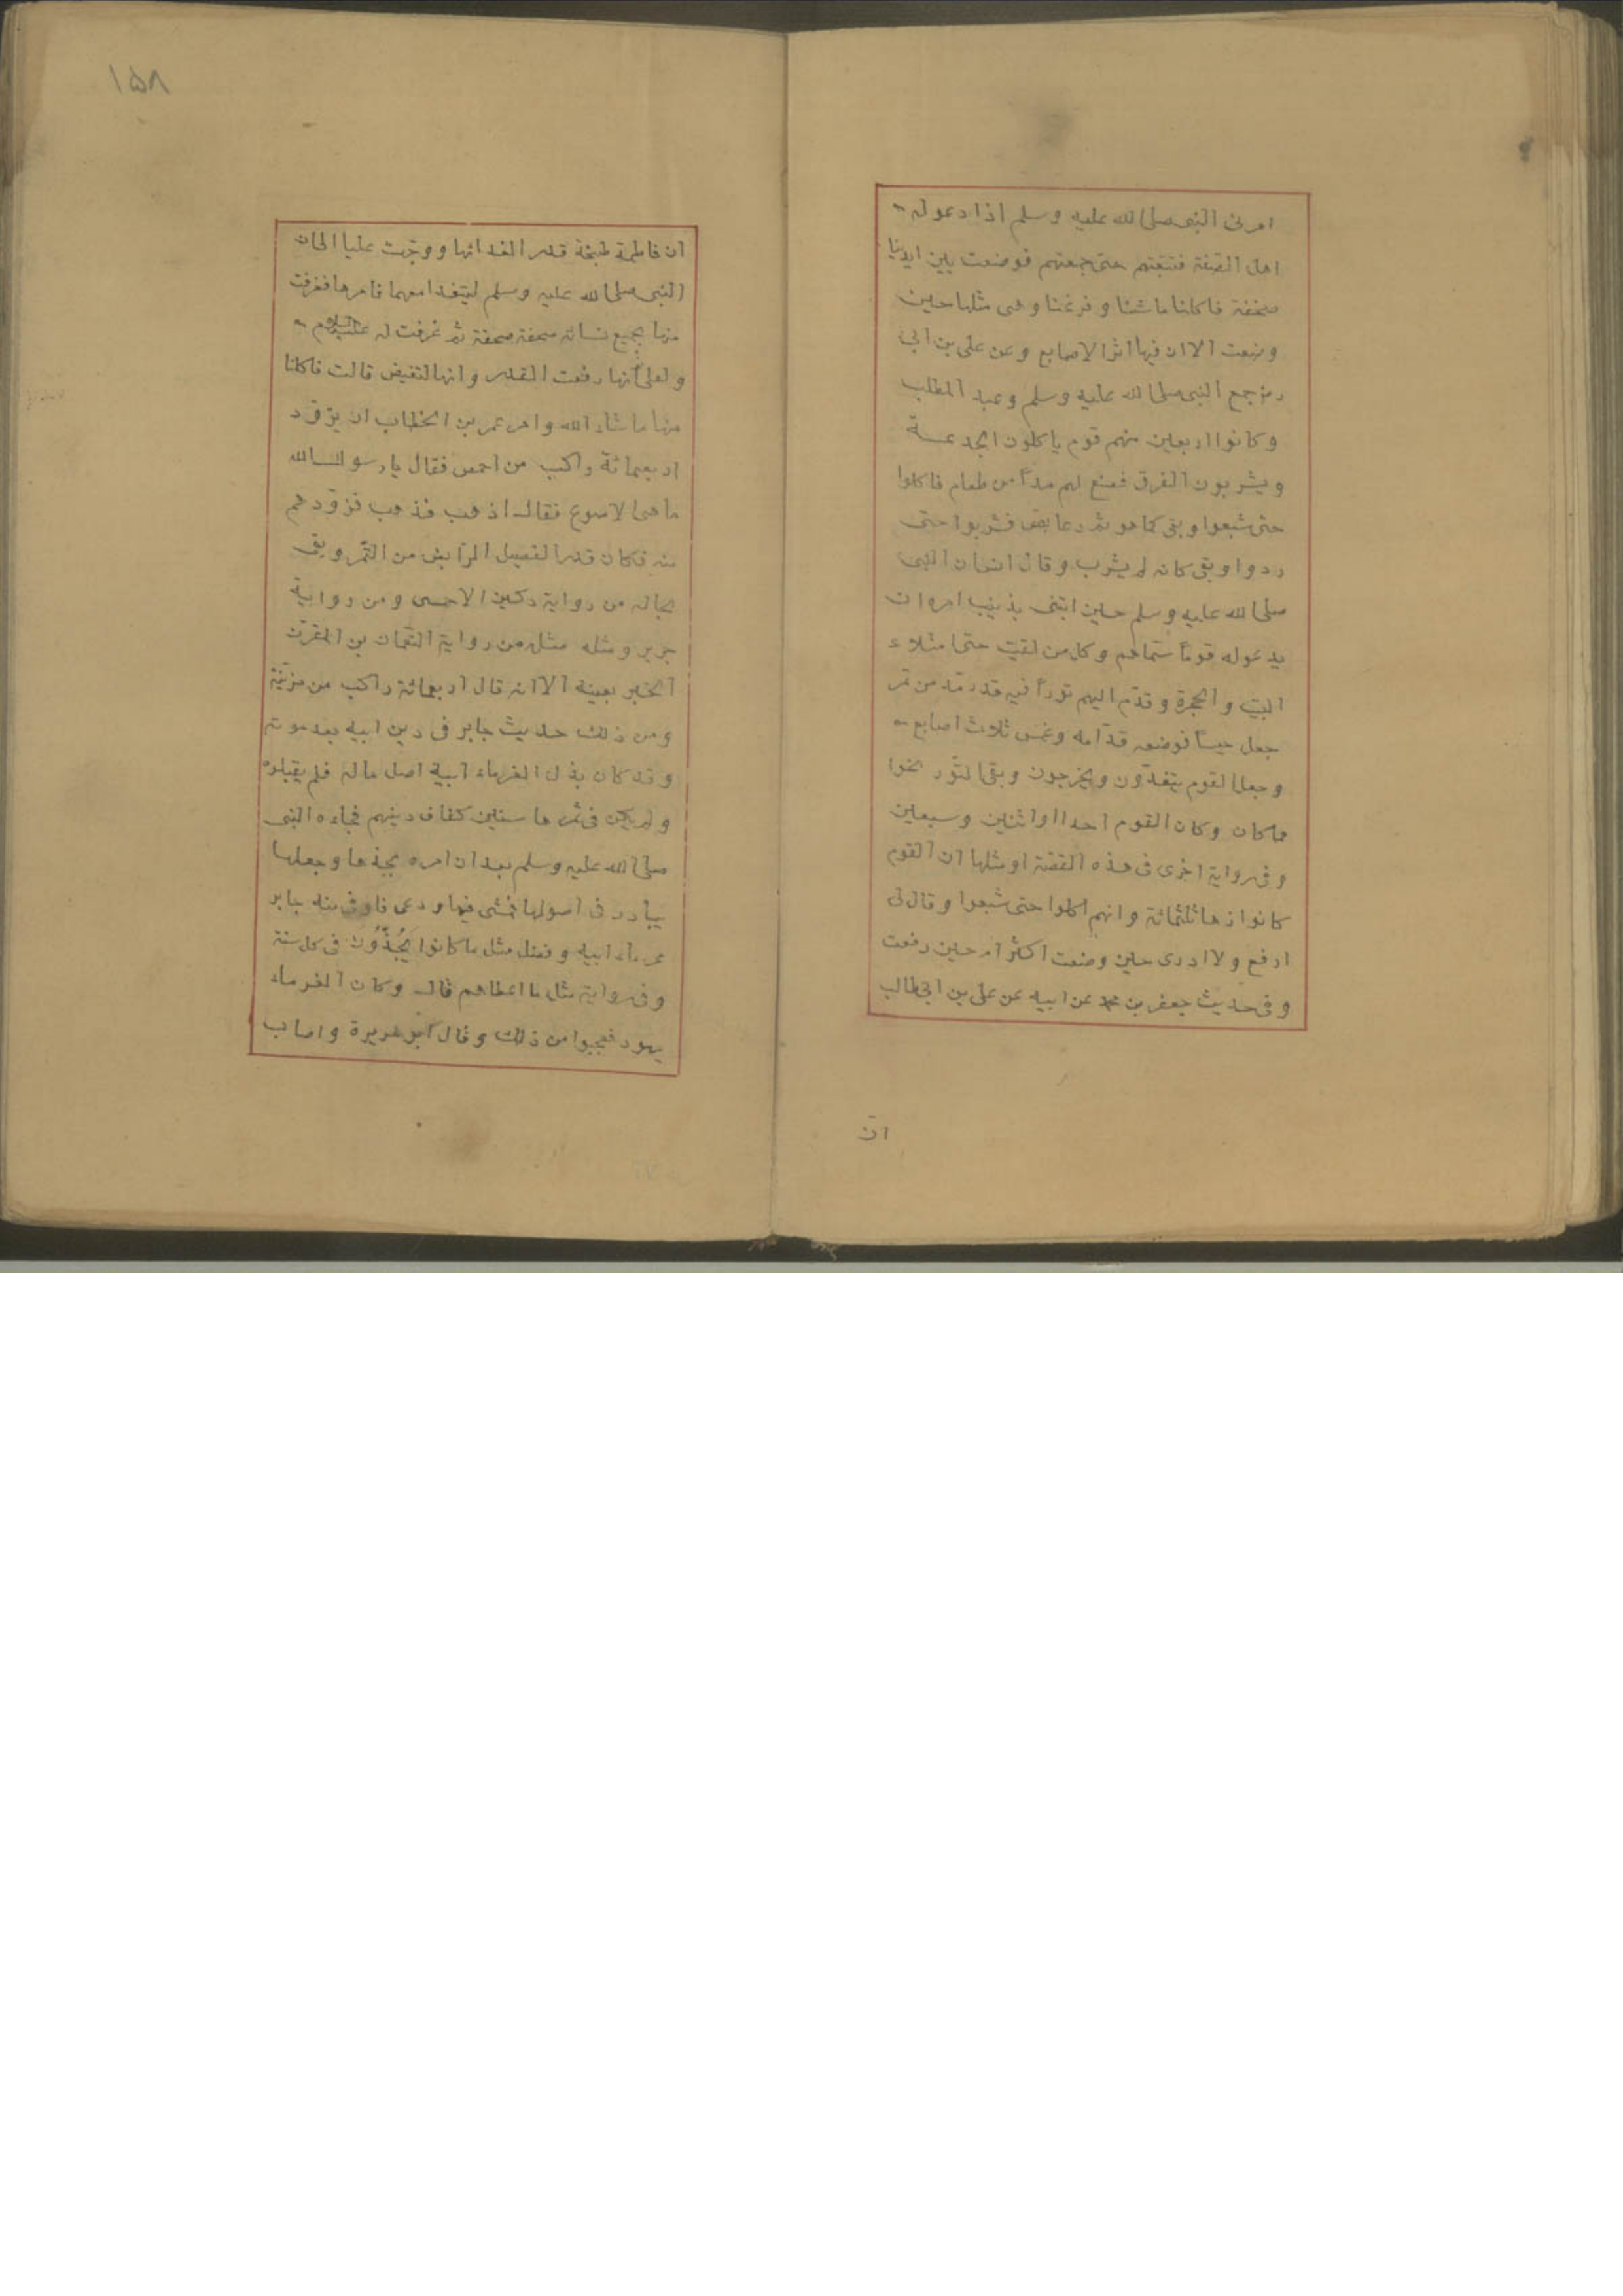 امرنى النبى صلى الله عليه وسلم اذا دعوله
اهل الصفة فتتبعتهم حتى جمعتهم فوضعت بين ايدينا
صحفة فاكلنا ما شئنا و فرغنا وهى مثلها حين
وضعت الا ان فيها اثر الاصابع وعن على بن ابى
جمع النبى صلى الله عليه وسلم وعبد المطلب
وكانوا اربعين منهم قوم ياكلون الجدعة
ويشربون الفرق فصنع لهم مداً من طعام فاكلوا
حتى شبعوا وبقى كما هو ثم دعا بعس فشربوا حتى
رووا وبقى كانه لم يشرب وقال انس ان النبى
صلى الله عليه وسلم حين ابتنى بزينب امره ان
يدعوله قوماً سماهم وكل من لقيت حتى امتلاء
البيت والحجرة وقدم اليهم توراً فيه قدر مد من تمر
جعل حيساً فوضعه قدامه وغمس ثلاث اصابع
وجعل القوم يتغدون ويخرجون وبقى التور نحوا
مما كان وكان القوم احدا او اثنين وسبعين
وفى رواية اخرى فى هذه القصة او مثلها ان القوم
كانوا زها ثلثمائة وانهم اكلوا حتى شبعوا وقال لى
ارفع ولا ادرى حين وضعت اكثر ام حين رفعت
وفى حديث جعفر بن محمد عن ابيه عن على بن ابى طالب
ان
١٥٨
ان فاطمة طبخة قدر الغدائها ووجهت عليا الى ان
النبى صلى الله عليه وسلم ليتغدا معهما فامرها فغرفت
منها بجميع نسائه صحفة صحفة ثم غرفت له عليه السلام
ولعلى انها رفعت القدر وانها لتفيض قالت فاكلنا
منها ما شاء الله وامر عمر بن الخطاب ان يزود
اربعمائة راكب من احمس فقال يا رسول الله
ما هى الا صوع فقال اذهب فذهب فزودهم
منه فكان قدر الفصيل الرابض من التمر وبقى
بحاله من رواية دكين الاحمسى ومن رواية
جرير ومثله مثل من رواية النعمان بن المقرن
الخبر بعينه الا انه قال اربعمائة راكب من مزينة
ومن ذلك حديث جابر فى دين ابيه بعد موته
وقد كان بذل الغرماء ابيه اصل ماله فلم يقبلوه
ولم يكن فى ثمرها سنتين كفاف دينهم فجاءه النبى
صلى الله عليه وسلم بعد ان امره بجذها وجعلها
بيادر فى اصولها فمشى فيها ودعى فاوفى منه جابر
غرماء ابيه وفضل مثل ما كانوا يُجذُّون فى كل سنة
وفى رواية مثل ما اعطاهم قال وكان الغرماء
يهود فعجبوا من ذلك وقال ابو هريرة واصاب